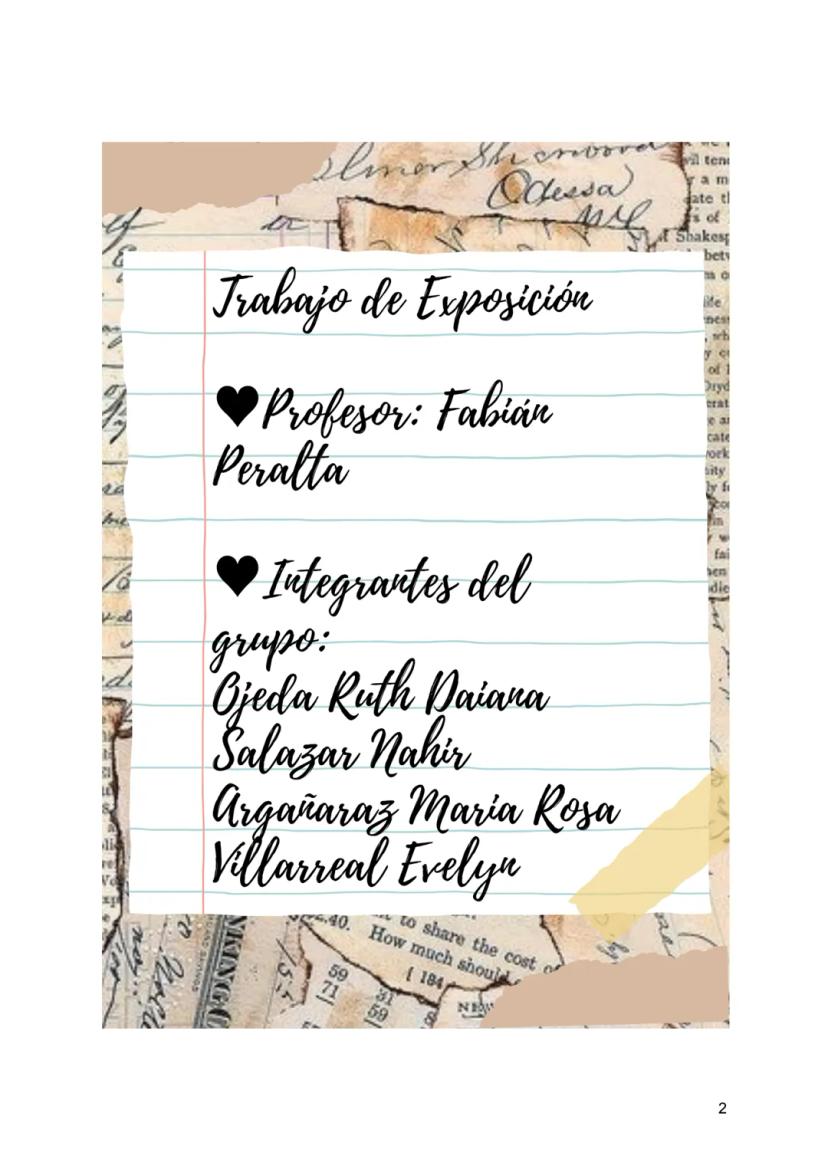 Elmer Sherwood
Odessa
Shakesp
Trabajo de Exposición
♥Profesor: Fabián
Peralta
♥Integrantes del
grupo:
Ojeda Ruth Daiana
Salazar Nahir
Argañaraz Maria Rosa
Villarreal Evelyn
2.40. to share the cost
How much should
( 184
59 31
71 59
2